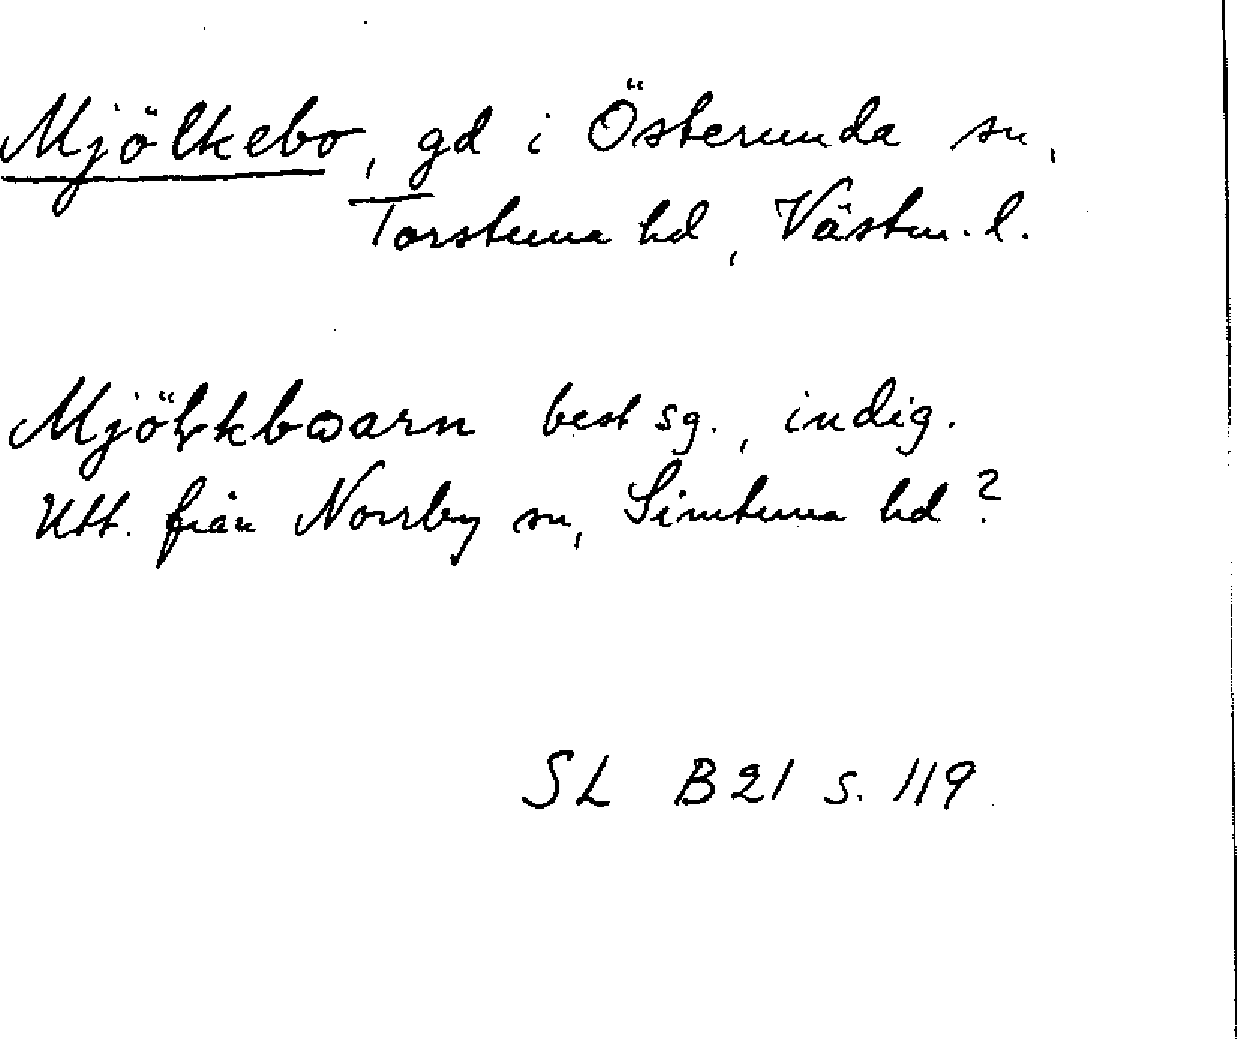 Mjölkebo, gd i Österunda sn,
Torstuna hd, Västm. l.
best sg., indig.
Utt. från Norrby sn, Simtuna hd?
SL B21 s. 119